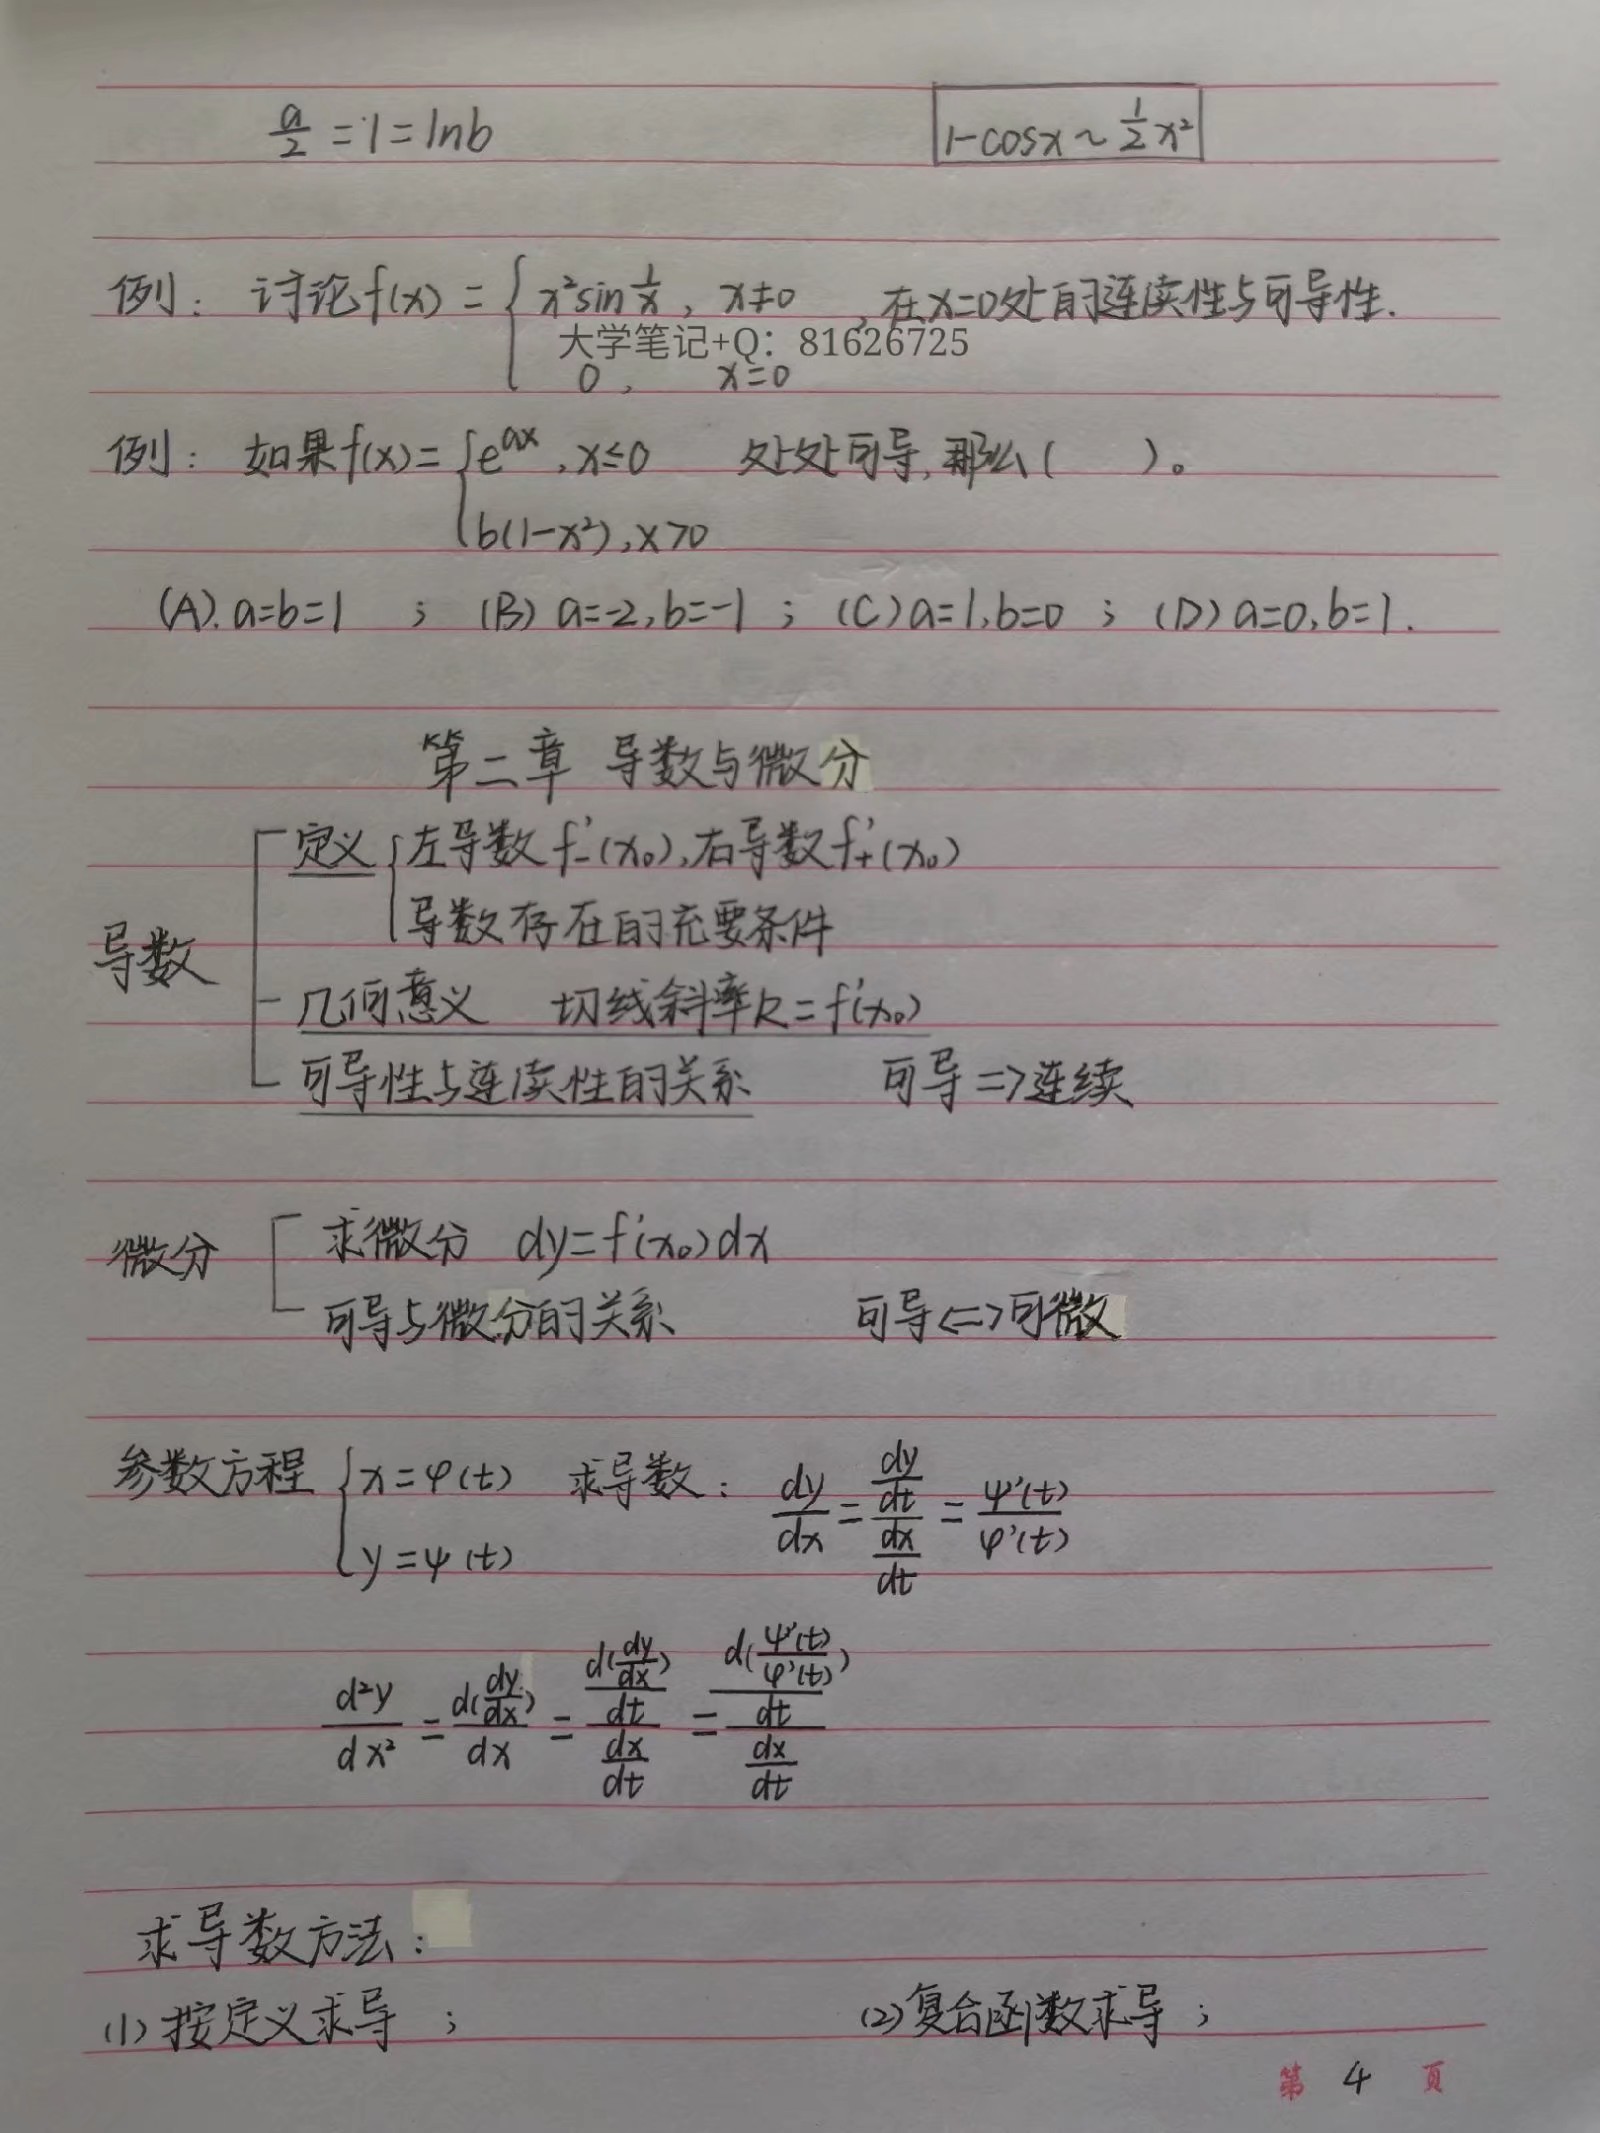 a/2 = 1 = lnb    1-cosx ~ 1/2 x²
例： 讨论f(x) = { x²sin 1/x , x≠0 , 在x=0处的连续性与可导性.
大学笔记+Q：81626725
0 , x=0
例： 如果f(x)= { e^{ax} , x≤0 处处可导, 那么( )。
b(1-x²), x>0
(A). a=b=1 ; (B) a=-2, b=-1 ; (C) a=1, b=0 ; (D) a=0, b=1.
第二章 导数与微分
定义 { 左导数 f'₋(x₀), 右导数 f'₊(x₀)
导数存在的充要条件
导数
几何意义 切线斜率k=f'(x₀)
可导性与连续性的关系 可导=>连续
微分 求微分 dy=f'(x₀)dx
可导与微分的关系 可导<=>可微
参数方程 { x=φ(t) 求导数： dy/dx = (dy/dt)/(dx/dt) = ψ'(t)/φ'(t)
y=ψ(t)
d²y/dx² = d(dy/dx)/dx = (d(dy/dx)/dt)/(dx/dt) = (d(ψ'(t)/φ'(t))/dt)/(dx/dt)
求导数方法：
(1) 按定义求导 ； (2) 复合函数求导 ；
第 4 页